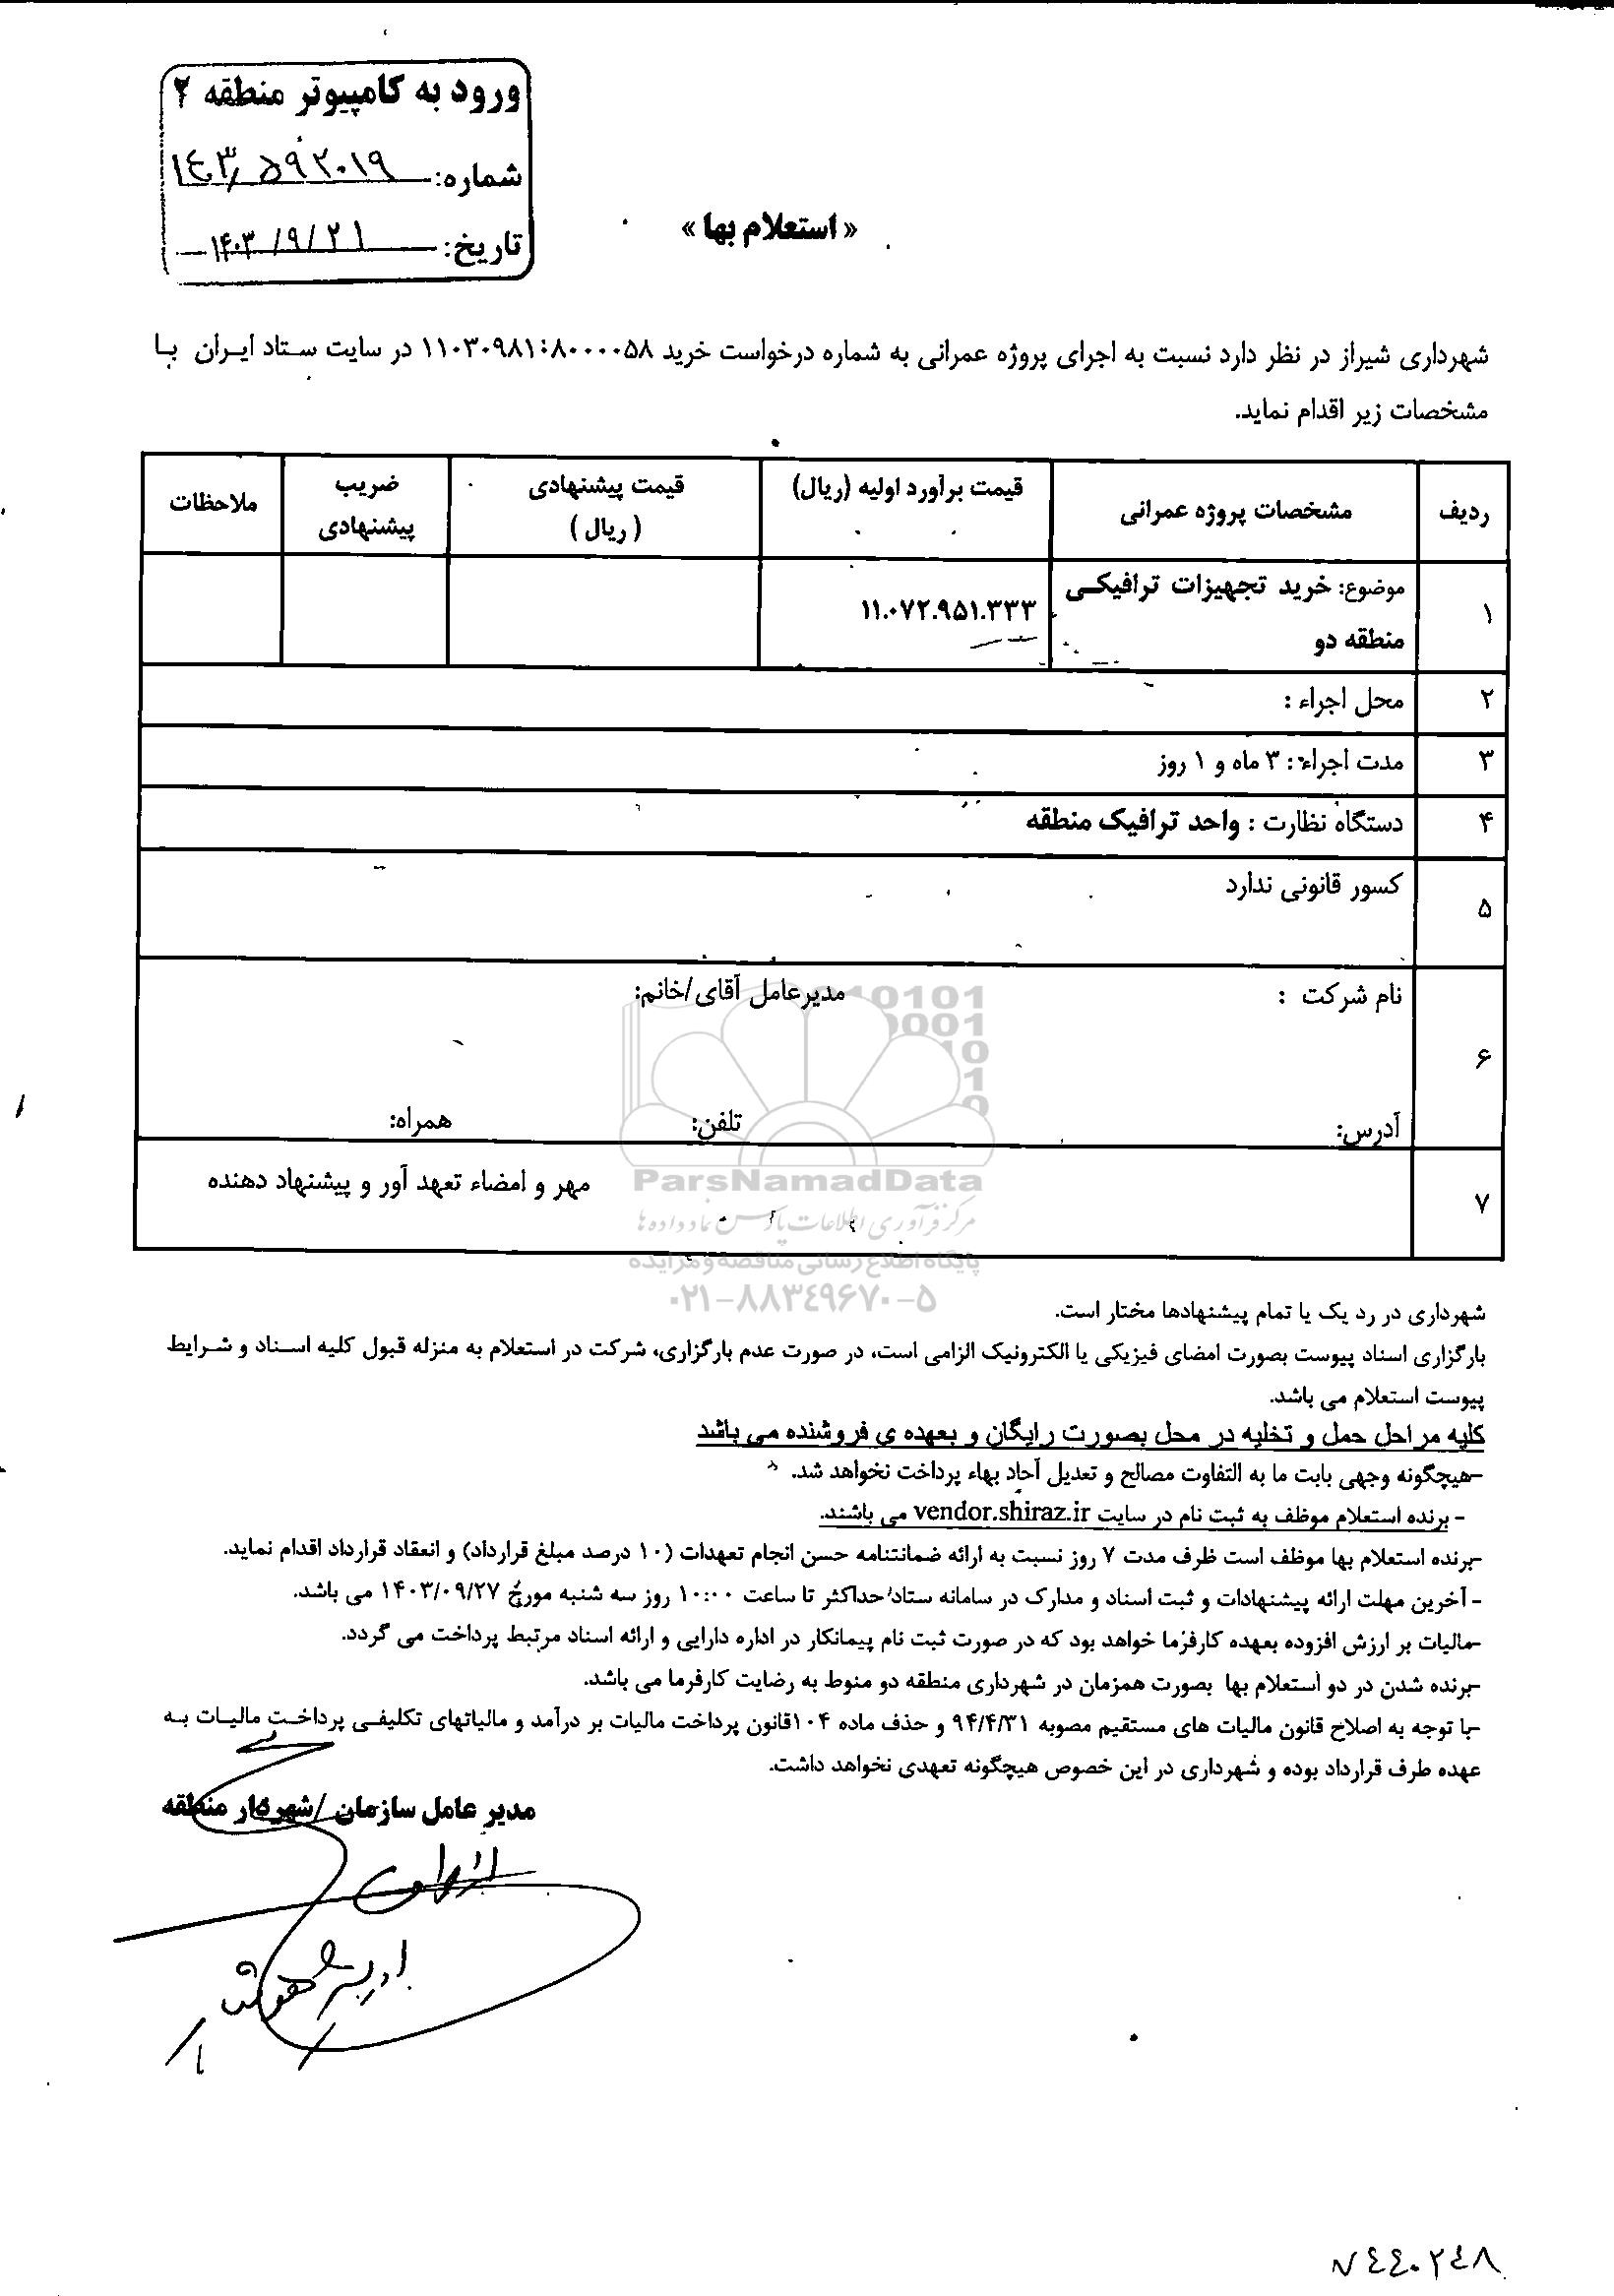 ورود به کامپیوتر منطقه ۲
شماره: ۱۴۳٫۵۹۲۰۱۹
تاریخ: ۱۴۰۳/۹/۲۱
« استعلام بها »
شهرداری شیراز در نظر دارد نسبت به اجرای پروژه عمرانی به شماره درخواست خرید در سایت ستاد ایران با
مشخصات زیر اقدام نماید.
ردیف مشخصات پروژه عمرانی قیمت برآورد اولیه (ریال) قیمت پیشنهادی (ریال) ضریب پیشنهادی ملاحظات
۱ موضوع: خرید تجهیزات ترافیکی ۱۱.۰۷۲.۹۵۱.۳۳۳
منطقه دو
۲ محل اجراء :
۳ مدت اجراء: ۳ ماه و ۱ روز
۴ دستگاه نظارت : واحد ترافیک منطقه
۵ کسور قانونی ندارد
۶ نام شرکت : مدیرعامل آقای/خانم:
آدرس: تلفن: همراه:
۷ مهر و امضاء تعهد آور و پیشنهاد دهنده
ParsNamadData
مرکز فرآوری اطلاعات پارس نماد داده ها
پایگاه اطلاع رسانی مناقصه و مزایده
۰۲۱-۸۸۳۴۹۶۷۰-۵
شهرداری در رد یک یا تمام پیشنهادها مختار است.
بارگزاری اسناد پیوست بصورت امضای فیزیکی یا الکترونیک الزامی است، در صورت عدم بارگزاری، شرکت در استعلام به منزله قبول کلیه اسناد و شرایط
پیوست استعلام می باشد.
کلیه مراحل حمل و تخلیه در محل بصورت رایگان و بعهده ی فروشنده می باشد
-هیچگونه وجهی بابت ما به التفاوت مصالح و تعدیل آحاد بهاء پرداخت نخواهد شد.
- برنده استعلام موظف به ثبت نام در سایت vendor.shiraz.ir می باشند.
-برنده استعلام بها موظف است ظرف مدت ۷ روز نسبت به ارائه ضمانتنامه حسن انجام تعهدات (۱۰ درصد مبلغ قرارداد) و انعقاد قرارداد اقدام نماید.
- آخرین مهلت ارائه پیشنهادات و ثبت اسناد و مدارک در سامانه ستاد حداکثر تا ساعت ۱۰:۰۰ روز سه شنبه مورخ ۱۴۰۳/۰۹/۲۷ می باشد.
-مالیات بر ارزش افزوده بعهده کارفرما خواهد بود که در صورت ثبت نام پیمانکار در اداره دارایی و ارائه اسناد مرتبط پرداخت می گردد.
-برنده شدن در دو استعلام بها بصورت همزمان در شهرداری منطقه دو منوط به رضایت کارفرما می باشد.
-با توجه به اصلاح قانون مالیات های مستقیم مصوبه ۹۴/۴/۳۱ و حذف ماده ۱۰۴قانون پرداخت مالیات بر درآمد و مالیاتهای تکلیفی پرداخت مالیات به
عهده طرف قرارداد بوده و شهرداری در این خصوص هیچگونه تعهدی نخواهد داشت.
مدیر عامل سازمان /شهردار منطقه
۷۴۴۰۲۴۸